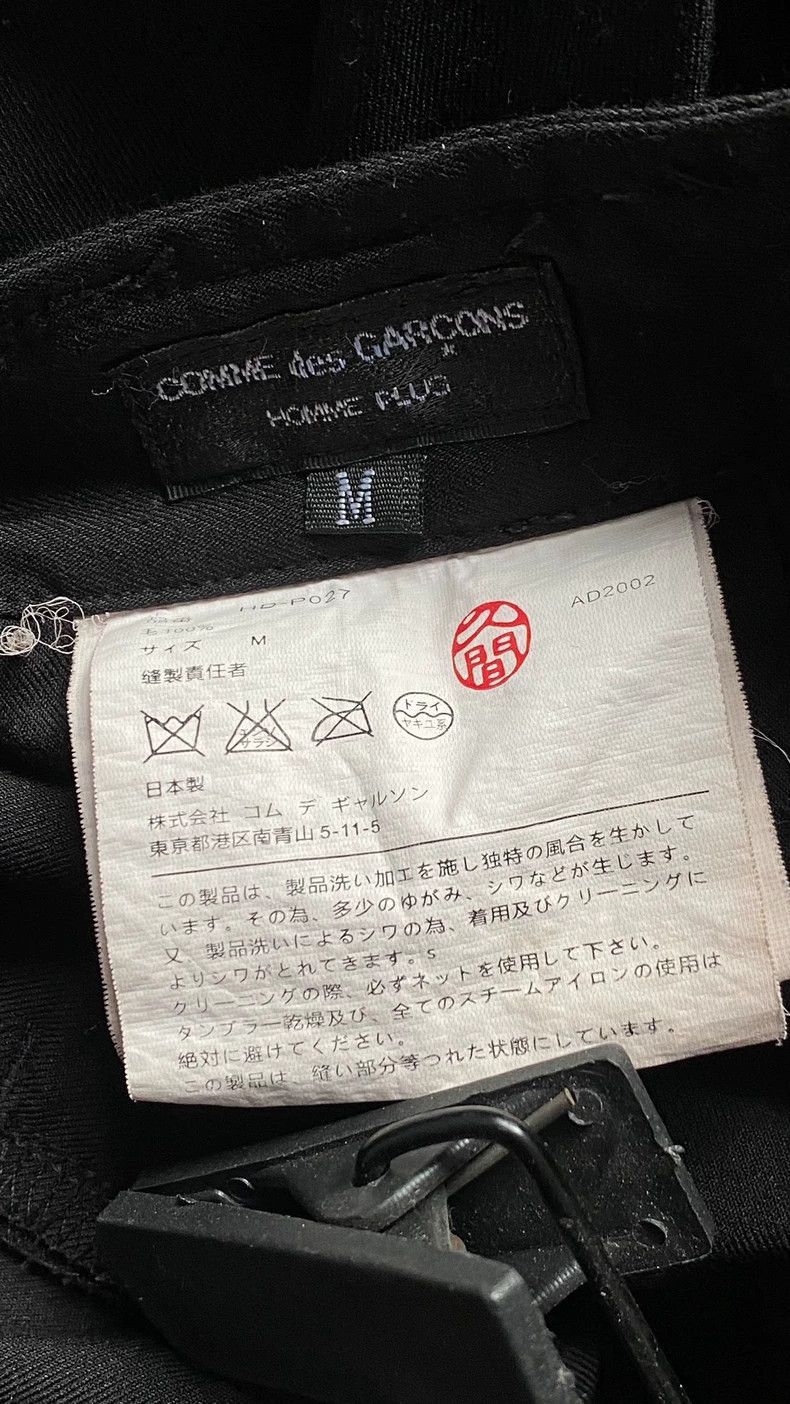 COMME des GARCONS
HOMME PLUS
M
品番 HD-P027
AD2002
毛100%
サイズ M
久間
縫製責任者
エンソサラシ
ドライ
セキユ系
日本製
株式会社 コム デ ギャルソン
東京都港区南青山5-11-5
この製品は、製品洗い加工を施し独特の風合を生かして
います。その為、多少のゆがみ、シワなどが生じます。
又、製品洗いによるシワの為、着用及びクリーニングに
よりシワがとれてきます。S
クリーニングの際、必ずネットを使用して下さい。
タンブラー乾燥及び、全てのスチームアイロンの使用は
絶対に避けてください。
この製品は、縫い部分等つれた状態にしています。